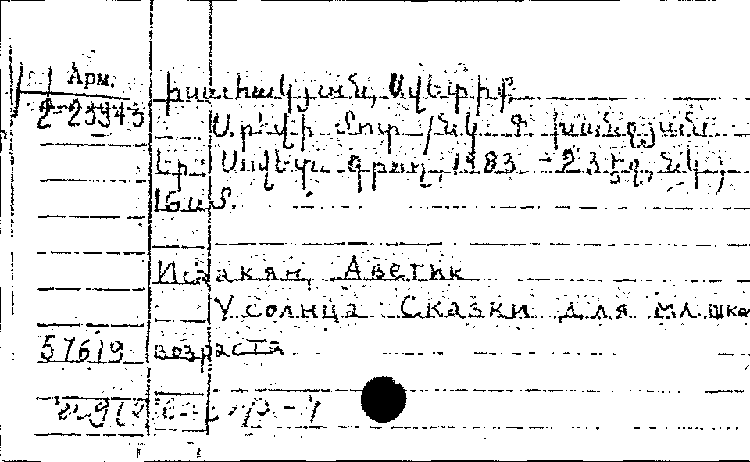 Арм.
2-23943
Իսահակյան, Ավետիք.
Արևի մոտ /նկ. Փ. խանզյան
Եր.: Սովետ. գրող, 1983 - 23 էջ, նկ.;
16 ս մ.
Исаакян, Аветик
У солнца Сказки для мл. шко
57619 возраста